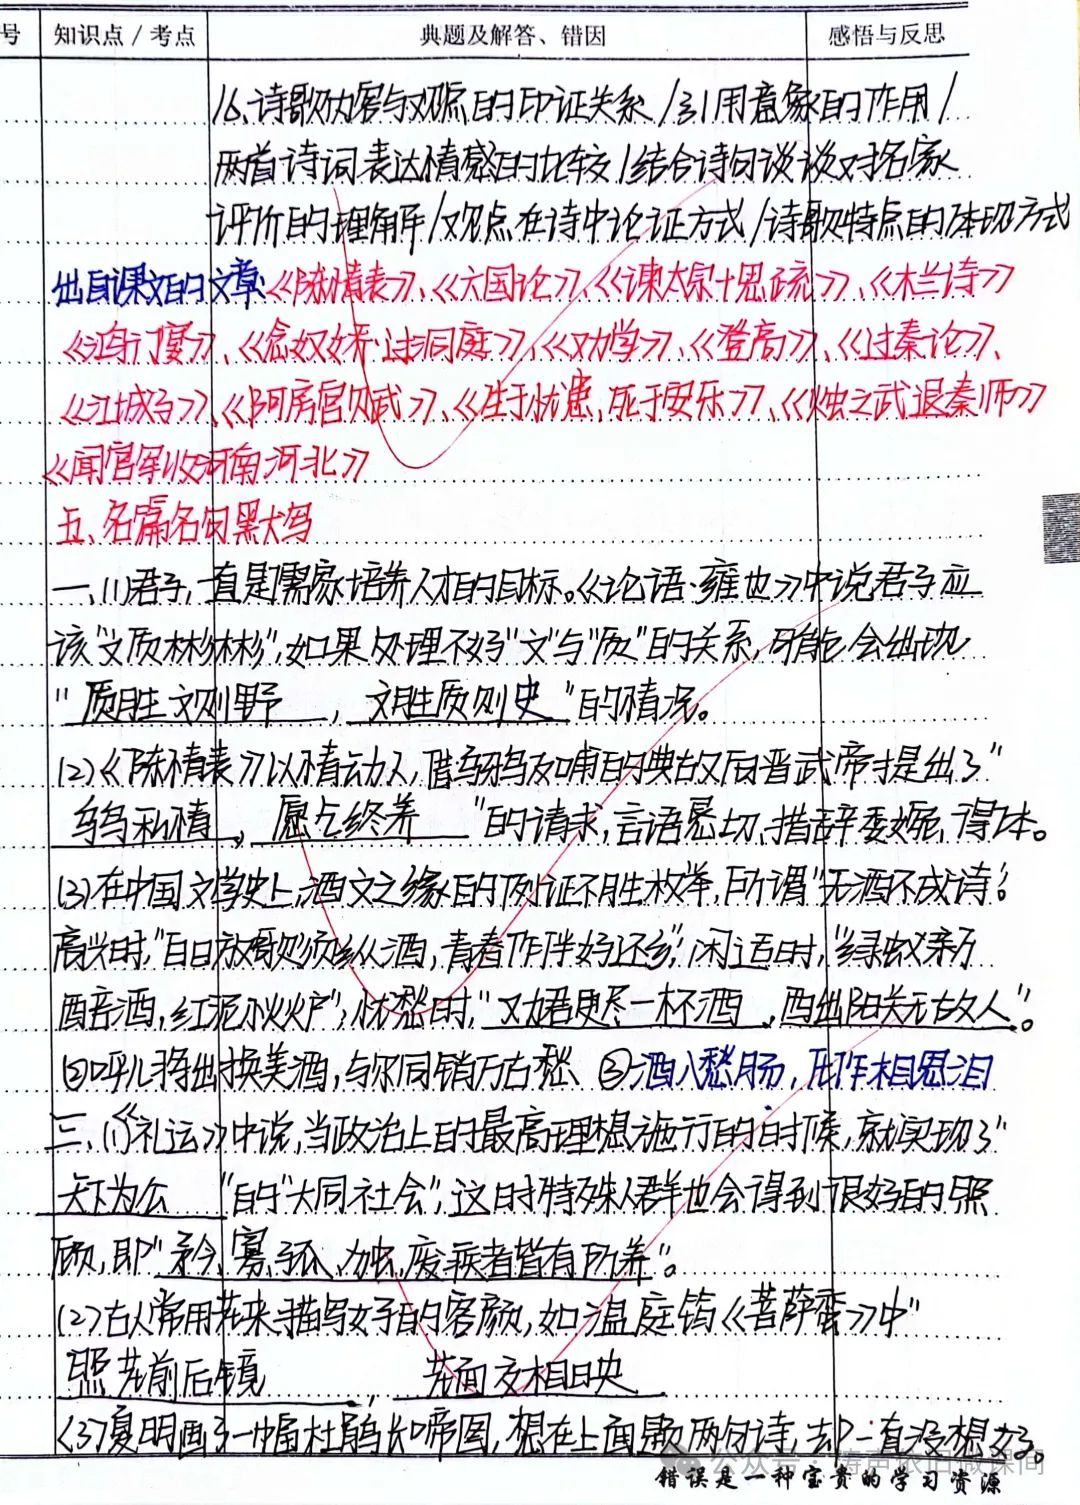 号 知识点/考点 典题及解答、错因 感悟与反思
16、诗歌内容与观点的印证关系/引用意象的作用/
两首诗词表达情感的比较/结合诗句谈谈对名家
评价的理解/观点在诗中论证方式/诗歌特点的体现方式
出自课文的文章:《陈情表》、《六国论》、《谏太宗十思疏》、《木兰诗》
《鸿门宴》、《念奴娇·过洞庭》、《劝学》、《登高》、《过秦论》、
《江城子》、《阿房宫赋》、《生于忧患,死于安乐》、《烛之武退秦师》
《闻官军收河南河北》
五、名篇名句默写
一、(1)君子,一直是儒家培养人才的目标。《论语·雍也》中说君子应
该“文质彬彬”,如果处理不好“文”与“质”的关系,可能会出现
“质胜文则野,文胜质则史”的情况。
(2)《陈情表》以情动人,借乌鸦反哺的典故向晋武帝提出了“
乌鸟私情,愿乞终养”的请求,言语恳切,措辞委婉,得体。
(3)在中国文学史上,酒文之缘的例证不胜枚举,所谓“无酒不成诗”:
高兴时,“白日放歌须纵酒,青春作伴好还乡”;闲适时,“绿蚁新
醅酒,红泥小火炉”;忧愁时,“劝君更尽一杯酒,西出阳关无故人”。
②呼儿将出换美酒,与尔同销万古愁 ③酒入愁肠,化作相思泪
三、(1)《礼运》中说,当政治上的最高理想施行的时候,就实现了“
天下为公”的“大同社会”,这时特殊人群也会得到很好的照
顾,即“矜、寡、孤、独、废疾者皆有所养”。
(2)古人常用花来描写女子的容颜,如温庭筠《菩萨蛮》中“
照花前后镜,花面交相映
(3)夏明画了一幅杜鹃长啼图,想在上面题两句诗,却一直没想好。
公众号·涛声依旧微课间
错误是一种宝贵的学习资源